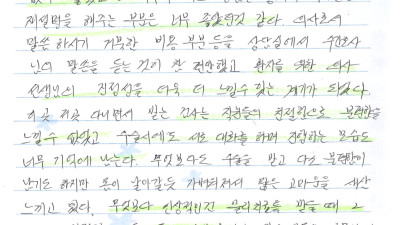 재설명을 해주는 부분은 너무 좋았던것 같다. 의사로서
말씀 하시기 거북한 비용 부분 등을 상담실에서 간호사
님의 말씀을 듣는 것이 참 편안했고 환자를 위한 의사
선생님의 진정성을 더욱 더 느낄수 있는 계기가 되었다.
이곳 저곳 다니면서 받는 검사는 직원들의 친절함으로 불편함을
느낄수 없었고 수술실에도 서로 대화를 하며 진행하는 모습도
너무 기억에 남는다. 무엇보다도 수술을 받고 다소 불편함이
남기도 하지만 몸이 날아갈듯 가벼워져서 많은 고마움을 새삼
느끼고 있다. 무엇보다 인상적인건 물리치료를 받을때 2